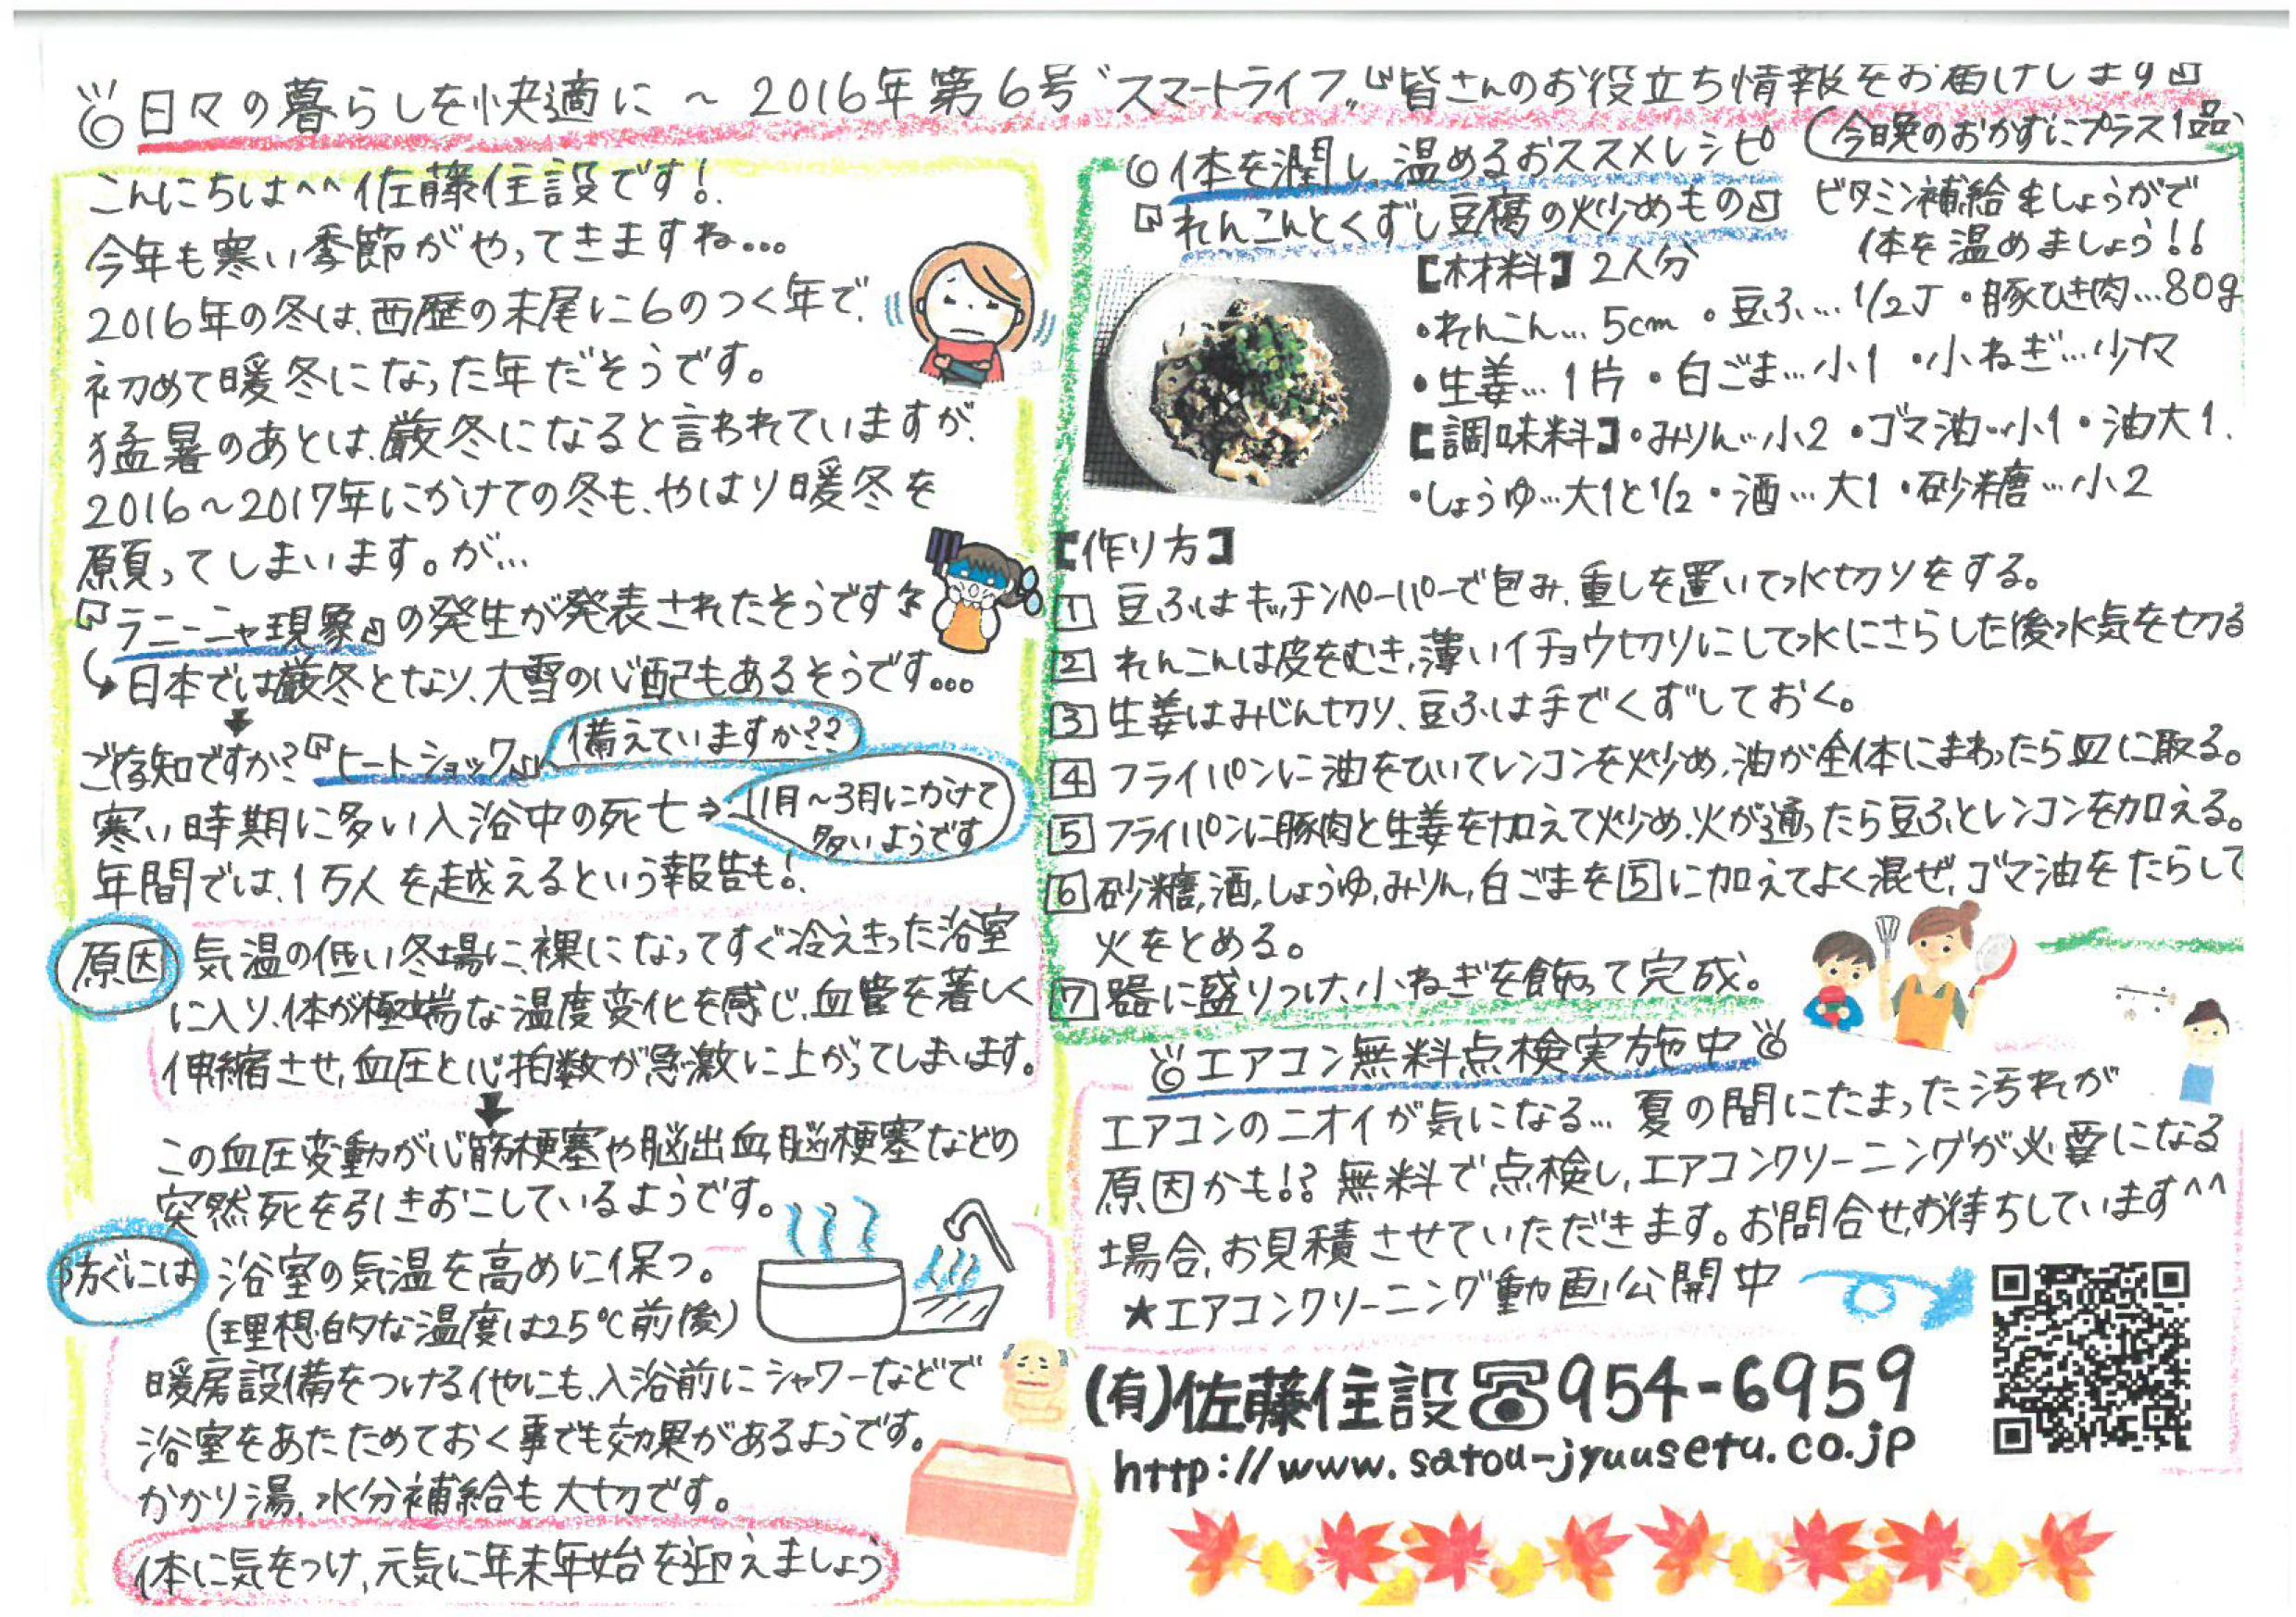 日々の暮らしを快適に ～ 2016年第6号 “スマートライフ„ 『皆さんのお役立ち情報をお届けします』
こんにちは^^佐藤住設です!
今年も寒い季節がやってきますね…
2016年の冬は、西歴の末尾に6のつく年で、
初めて暖冬になった年だそうです。
猛暑のあとは、厳冬になると言われていますが、
2016～2017年にかけての冬も、やはり暖冬を
願ってしまいます。が…
『ラニーニャ現象』の発生が発表されたそうです
↳日本では厳冬となり、大雪の心配もあるそうです…
↓
ご存知ですか?『ヒートショック』
備えていますか??
寒い時期に多い入浴中の死亡⇒
11月～3月にかけて
多いようです
年間では、1万人を越えるという報告も!
原因
気温の低い冬場に、裸になってすぐ冷えきった浴室
に入り、体が極端な温度変化を感じ、血管を著しく
伸縮させ、血圧と心拍数が急激に上がってしまいます。
↓
この血圧変動が心筋梗塞や脳出血、脳梗塞などの
突然死を引きおこしているようです。
防ぐには
浴室の気温を高めに保つ。
(理想的な温度は25℃前後)
暖房設備をつける他にも、入浴前にシャワーなどで
浴室をあたためておく事でも効果があるようです。
かかり湯、水分補給も大切です。
体に気をつけ、元気に年末年始を迎えましょう
◎体を潤し、温めるおススメレシピ
今晩のおかずにプラス1品
『れんこんとくずし豆腐の炒めもの』
ビタミン補給&しょうがで
体を温めましょう!!
【材料】2人分
・れんこん…5cm ・豆ふ…1/2丁 ・豚ひき肉…80g
・生姜…1片 ・白ごま…小1 ・小ねぎ…少々
【調味料】・みりん…小2 ・ゴマ油…小1 ・油大1
・しょうゆ…大1と1/2 ・酒…大1 ・砂糖…小2
【作り方】
1 豆ふはキッチンペーパーで包み、重しを置いて水切りをする。
2 れんこんは皮をむき、薄いイチョウ切りにして水にさらした後水気を切る
3 生姜はみじん切り、豆ふは手でくずしておく。
4 フライパンに油をひいてレンコンを炒め、油が全体にまわったら皿に取る。
5 フライパンに豚肉と生姜を加えて炒め、火が通ったら豆ふとレンコンを加える。
6 砂糖、酒、しょうゆ、みりん、白ごまを5に加えてよく混ぜ、ゴマ油をたらして
火をとめる。
7 器に盛りつけ、小ねぎを飾って完成。
エアコン無料点検実施中
エアコンのニオイが気になる…夏の間にたまった汚れが
原因かも!?無料で点検し、エアコンクリーニングが必要になる
場合、お見積させていただきます。お問合せ、お待ちしています^^
★エアコンクリーニング動画公開中
(有)佐藤住設☎954-6959
http://www.satou-jyuusetu.co.jp